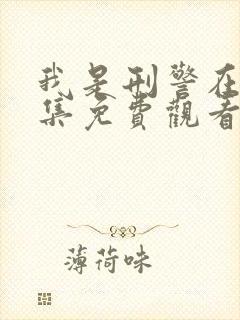 我是刑警在
集免費觀看
薄荷味